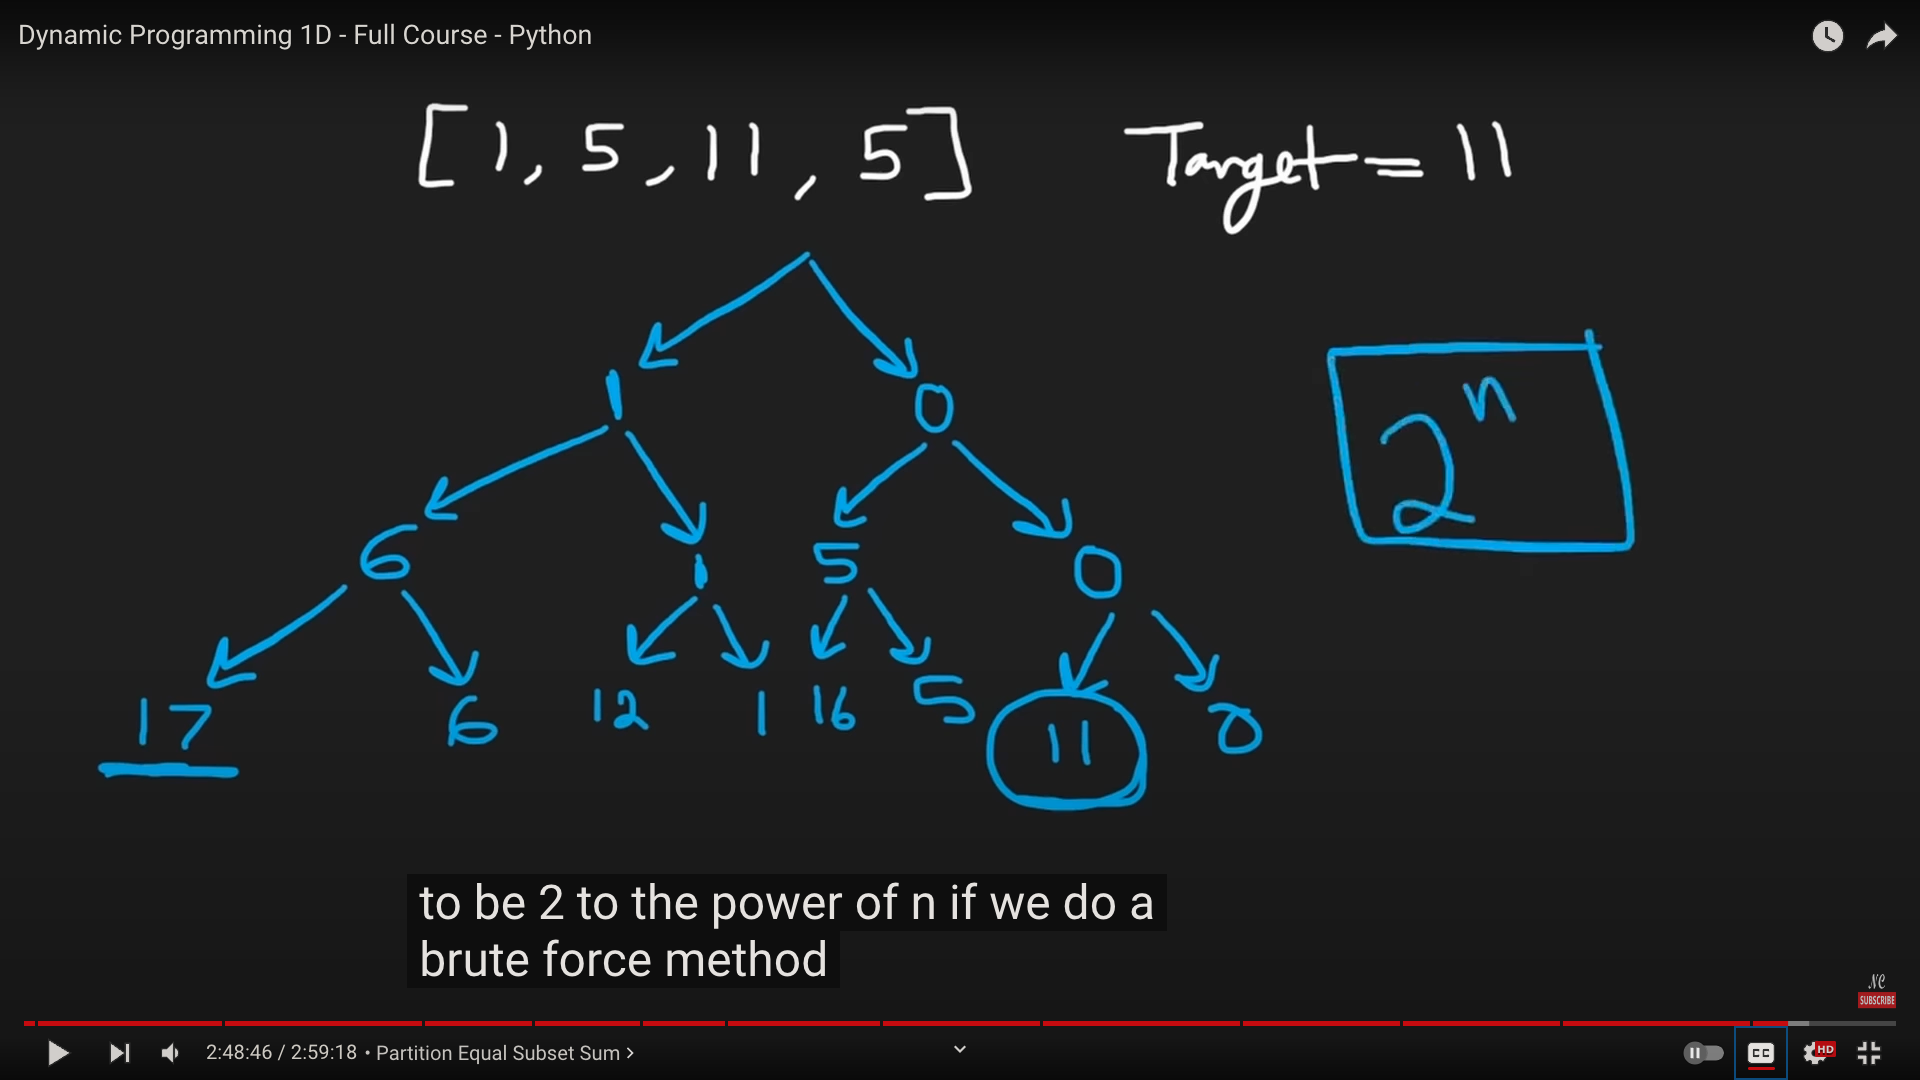 Dynamic Programming 1D - Full Course - Python
[1, 5, 11, 5] Target = 11
1 0
2^n
6 1 5 0
17 6 12 1 16 5 11 0
to be 2 to the power of n if we do a
brute force method
NC
SUBSCRIBE
2:48:46 / 2:59:18 • Partition Equal Subset Sum >
CC HD